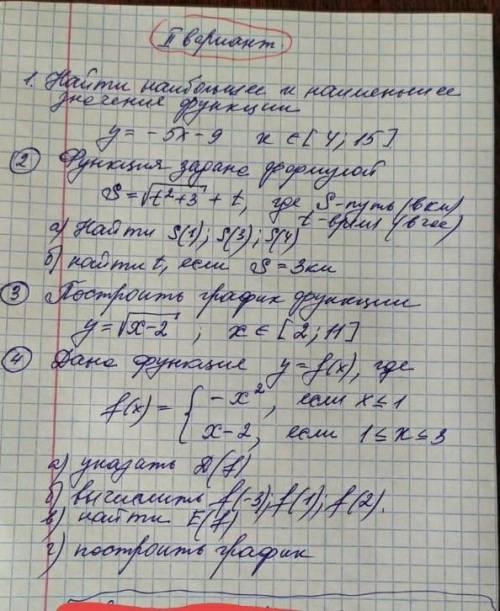 II вариант.
1. Найти наибольшее и наименьшее
значение функции
y = -5x-9 x ∈ [4; 15]
2 Функция задана формулой
S = √t²+3 + t, где S-путь (в км)
t-время (в час)
а) Найти S(1); S(3); S(4)
б) найти t, если S = 3км
3 Построить график функции
y = √x-2 ; x ∈ [2; 11]
4 Дана функция y = f(x), где
f(x) = { -x², если x ≤ 1
x-2, если 1 ≤ x ≤ 3
а) указать D(f)
б) вычислить f(-3); f(1); f(2).
в) найти E(f)
г) построить график